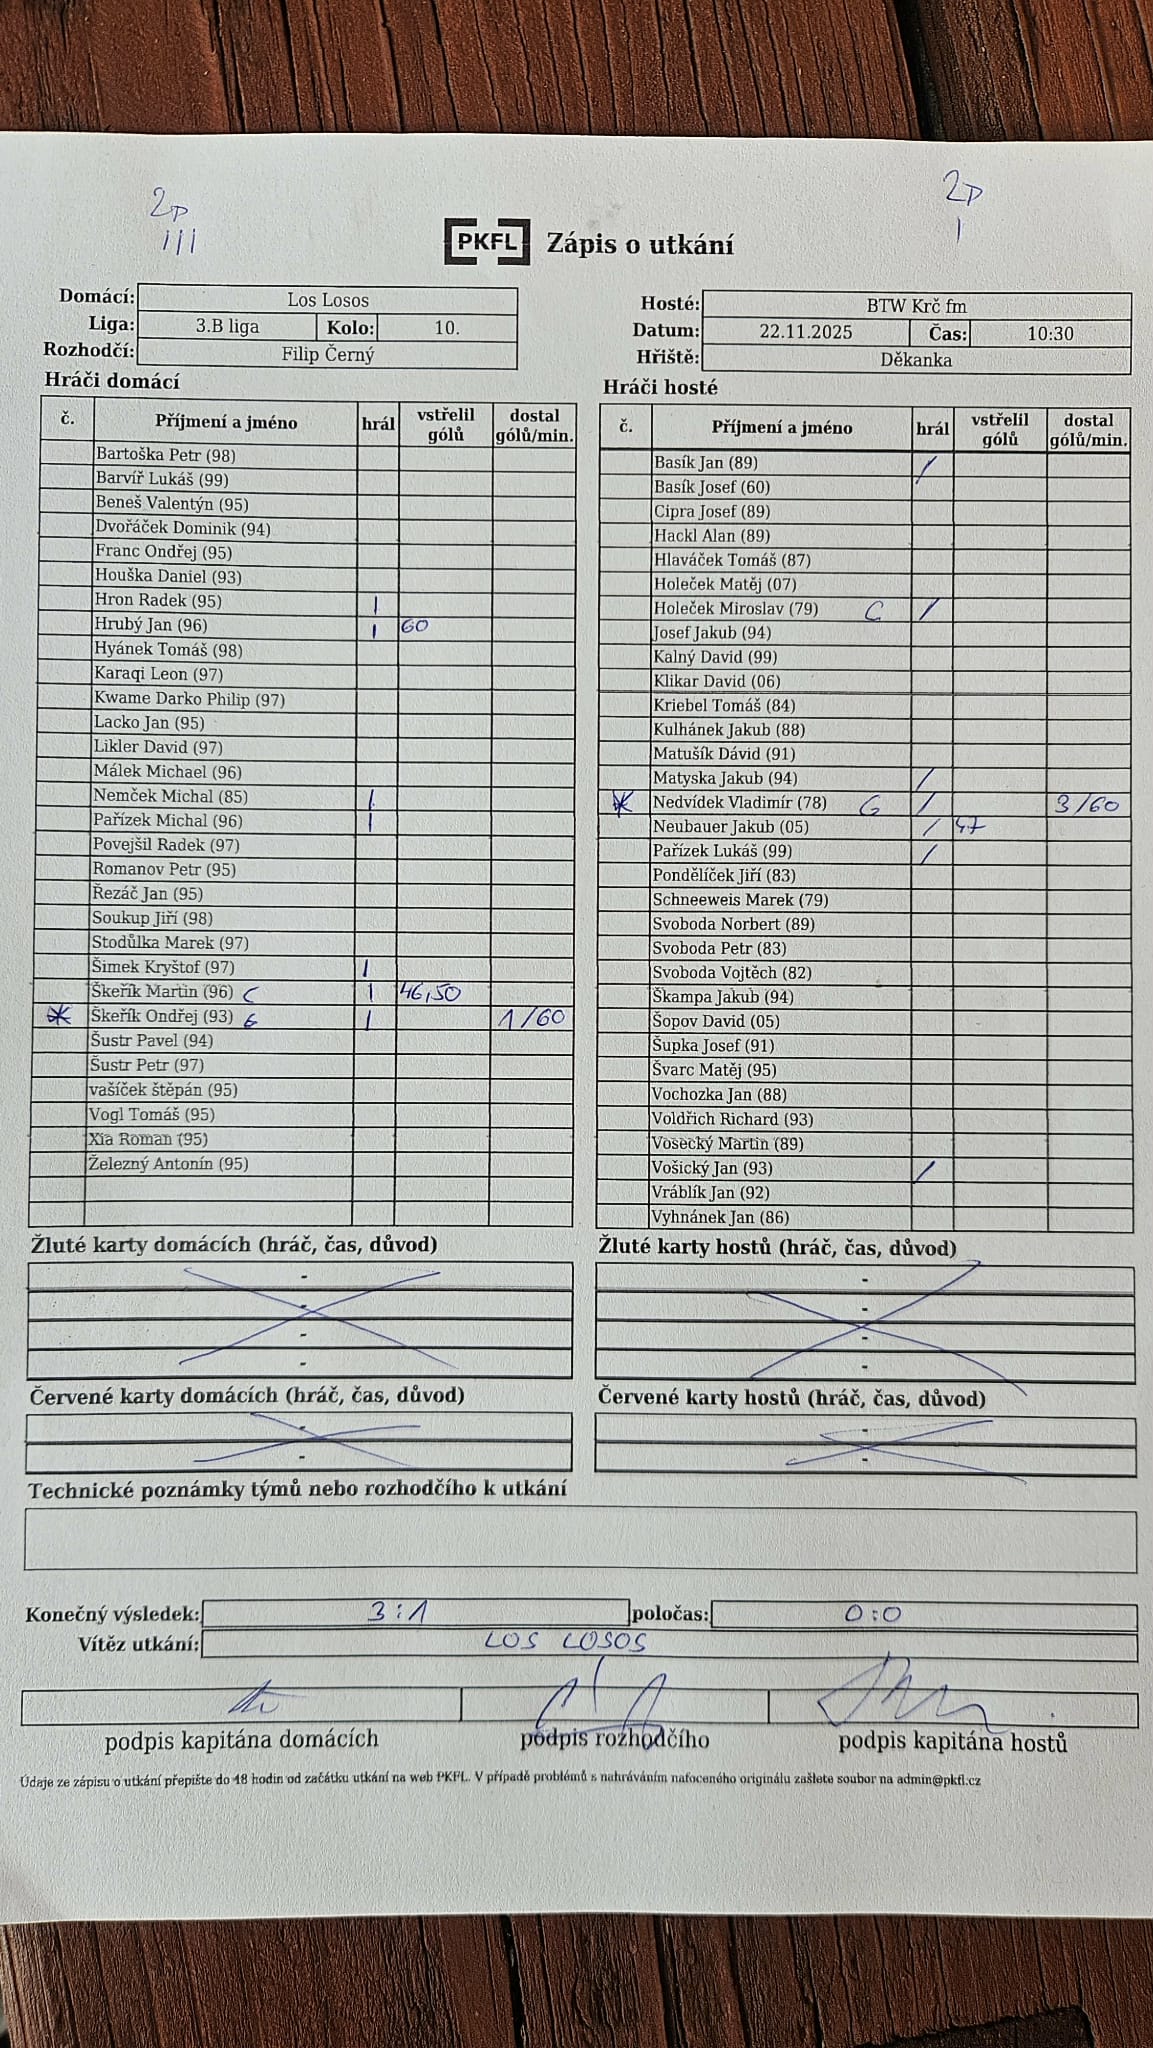 2P
III
2P
I
PKFL Zápis o utkání
Domácí: Los Losos
Liga: 3.B liga Kolo: 10.
Rozhodčí: Filip Černý
Hosté: BTW Krč fm
Datum: 22.11.2025 Čas: 10:30
Hřiště: Děkanka
Hráči domácí
č. Příjmení a jméno hrál vstřelil gólů dostal gólů/min.
Bartoška Petr (98)
Barvíř Lukáš (99)
Beneš Valentýn (95)
Dvořáček Dominik (94)
Franc Ondřej (95)
Houška Daniel (93)
Hron Radek (95) I
Hrubý Jan (96) I 60
Hyánek Tomáš (98)
Karaqi Leon (97)
Kwame Darko Philip (97)
Lacko Jan (95)
Likler David (97)
Málek Michael (96)
Nemček Michal (85) I
Pařízek Michal (96) I
Povejšil Radek (97)
Romanov Petr (95)
Řezáč Jan (95)
Soukup Jiří (98)
Stodůlka Marek (97)
Šimek Kryštof (97) I
Škeřík Martin (96) C I 46,50
* Škeřík Ondřej (93) G I 1/60
Šustr Pavel (94)
Šustr Petr (97)
vašíček štěpán (95)
Vogl Tomáš (95)
Xia Roman (95)
Železný Antonín (95)
Hráči hosté
č. Příjmení a jméno hrál vstřelil gólů dostal gólů/min.
Basík Jan (89) /
Basík Josef (60)
Cipra Josef (89)
Hackl Alan (89)
Hlaváček Tomáš (87)
Holeček Matěj (07)
Holeček Miroslav (79) C /
Josef Jakub (94)
Kalný David (99)
Klikar David (06)
Kriebel Tomáš (84)
Kulhánek Jakub (88)
Matušík Dávid (91)
Matyska Jakub (94) /
* Nedvídek Vladimír (78) G / 3/60
Neubauer Jakub (05) / 47
Pařízek Lukáš (99) /
Pondělíček Jiří (83)
Schneeweis Marek (79)
Svoboda Norbert (89)
Svoboda Petr (83)
Svoboda Vojtěch (82)
Škampa Jakub (94)
Šopov David (05)
Šupka Josef (91)
Švarc Matěj (95)
Vochozka Jan (88)
Voldřich Richard (93)
Vosecký Martin (89)
Vošický Jan (93) /
Vráblík Jan (92)
Vyhnánek Jan (86)
Žluté karty domácích (hráč, čas, důvod)
-
-
-
-
Žluté karty hostů (hráč, čas, důvod)
-
-
-
-
Červené karty domácích (hráč, čas, důvod)
-
-
Červené karty hostů (hráč, čas, důvod)
-
-
Technické poznámky týmů nebo rozhodčího k utkání
Konečný výsledek: 3:1 poločas: 0:0
Vítěz utkání: LOS LOSOS
podpis kapitána domácích podpis rozhodčího podpis kapitána hostů
Údaje ze zápisu o utkání přepište do 48 hodin od začátku utkání na web PKFL. V případě problémů s nahráváním nafoceného originálu zašlete soubor na admin@pkfl.cz